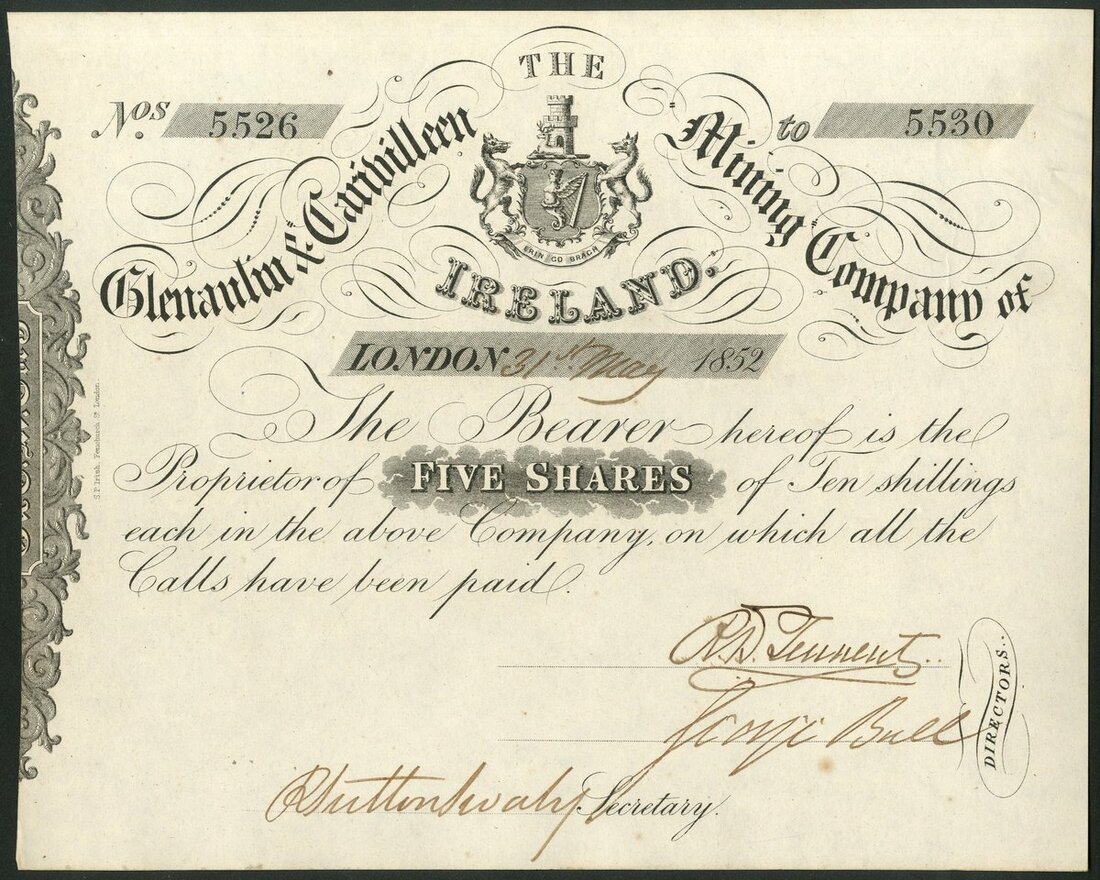 THE
Nos 5526 to 5530
Glenaulin & Carivilleen Mining Company of
ERIN GO BRAGH
IRELAND.
LONDON 31st May 1852
The Bearer hereof is the
Proprietor of FIVE SHARES of Ten shillings
each in the above Company, on which all the
Calls have been paid.
R. D. Tennent
George Bull
DIRECTORS.
Secretary.
S.P. Irish, Fenchurch St. London.